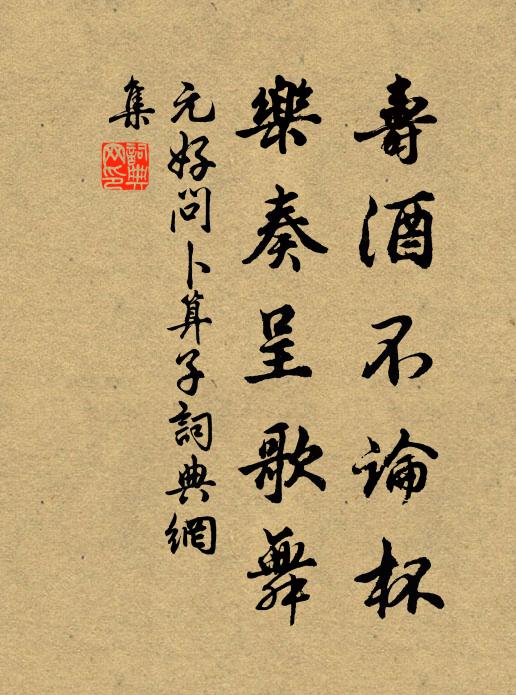 壽酒不論杯
樂奏呈歌舞
元好問卜算子詞典網
集
詞典網印